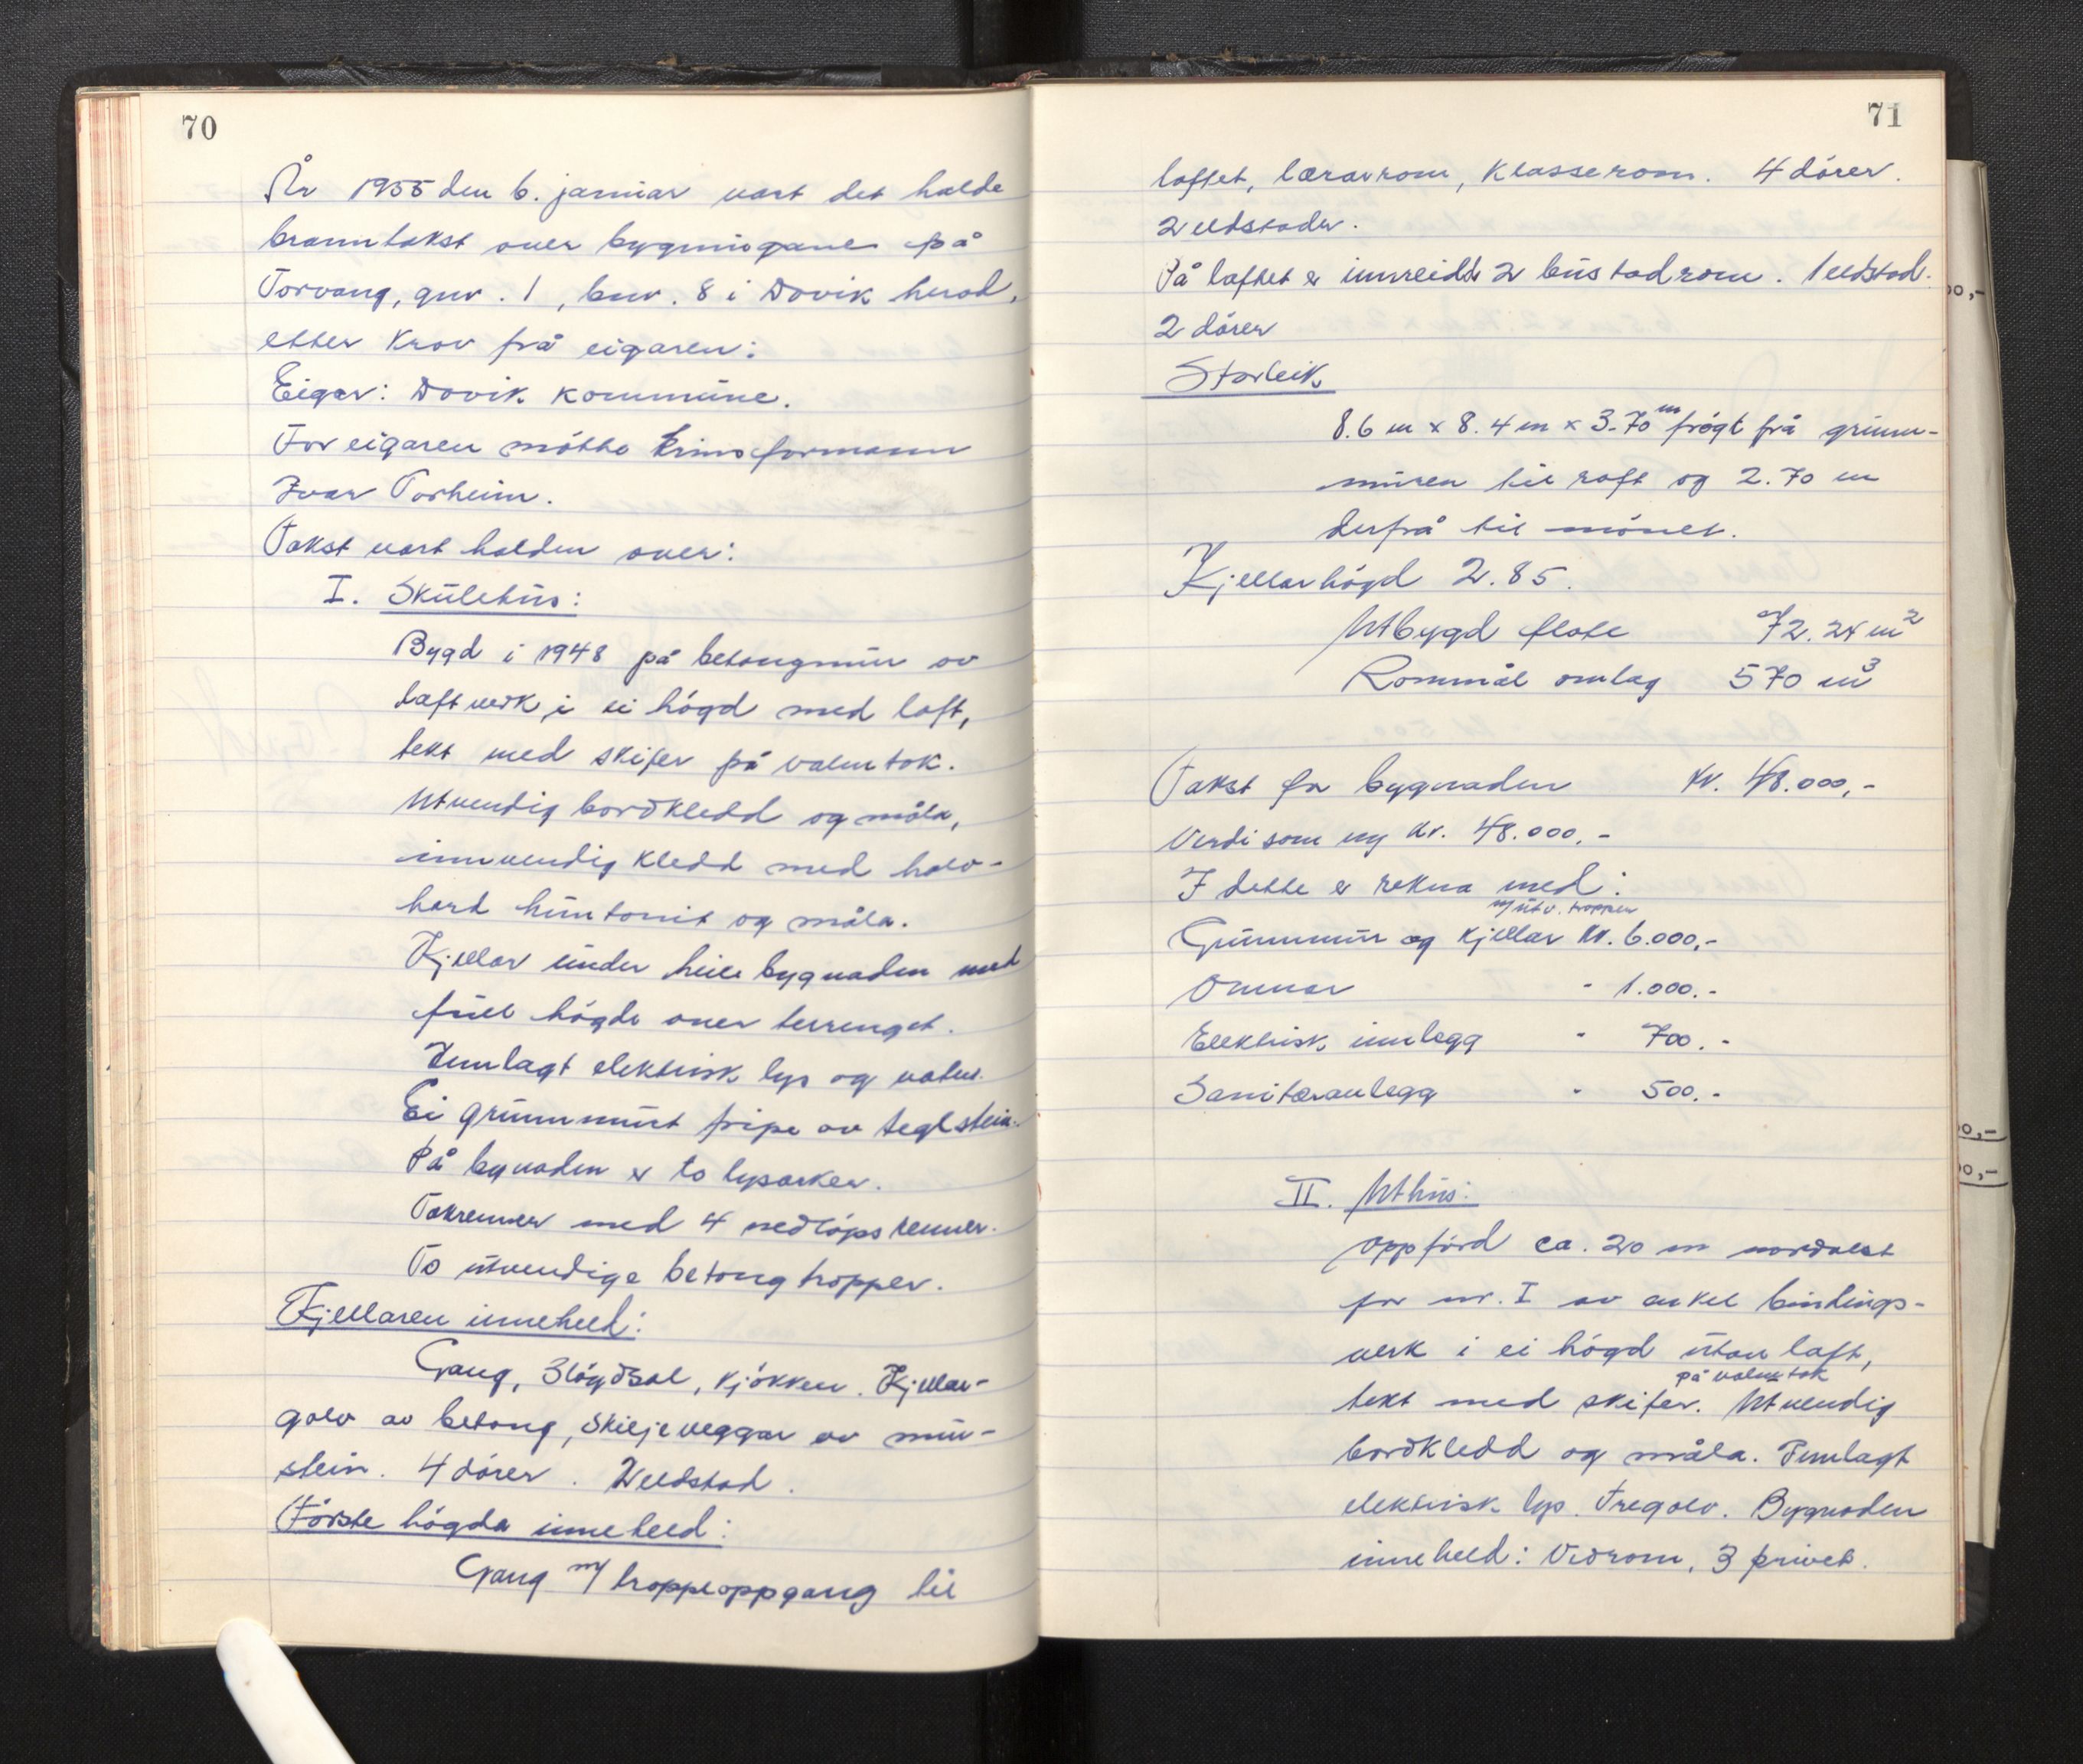 70
År 1955 den 6. januar vart det halde
branntakst over bygningane på
Torvang, gnr. 1, bnr. 8 i Davik herad,
etter krav frå eigaren:
Eigar: Davik kommune.
For eigaren møtte krinsformann
Ivar Torheim.
Takst vart halden over:
I. Skulehus:
Bygd i 1948 på betongmur av
laftverk i ei högd med loft,
tekt med skifer på valmtak.
Utvendig bordkledd og måla,
innvendig kledd med halv-
hard huntonit og måla.
Kjellar under heile bygnaden med
full högde over terrenget.
Innlagt elektrisk lys og vatn.
Ei grunnmurt pipe av teglstein.
På bygnaden er to lysarker.
Takrenner med 4 nedlöpsrenner.
To utvendige betongtropper.
Kjellaren inneheld:
Gang, Slöydsal, kjökken. Kjellar-
golv av betong, skiljeveggar av mur-
stein. 4 dörer. 2 eldstad.
Förste högda inneheld:
Gang m/ troppeoppgang til
71
loftet, lærarrom, klasserom. 4 dörer.
2 eldstader.
På loftet er innreidd 2 bustadrom. 1 eldstad.
2 dörer
Storleik
8.6 m x 8.4 m x 3.70 m högt frå grunn-
muren til raft og 2.70 m
derfrå til mönet.
Kjellarhögd 2.85.
Utbygd flate 72.24 m²
Rommål omlag 570 m³
Takst for bygnaden kr. 48.000,-
Verdi som ny kr. 48.000.-
I dette er rekna med:
m/utv. tropper
Grunnmur og kjellar kr. 6.000,-
Omnar - 1.000.-
Elektrisk innlegg - 700.-
Sanitæranlegg - 500.-
II. Uthus:
Oppförd ca. 20 m nordaust
for nr. I av enkel bindings-
verk i ei högd utan loft,
på valmtak
tekt med skifer. Utvendig
bordkledd og måla. Innlagt
elektrisk lys. Tregolv. Bygnaden
inneheld: Vedrom, 3 privet.